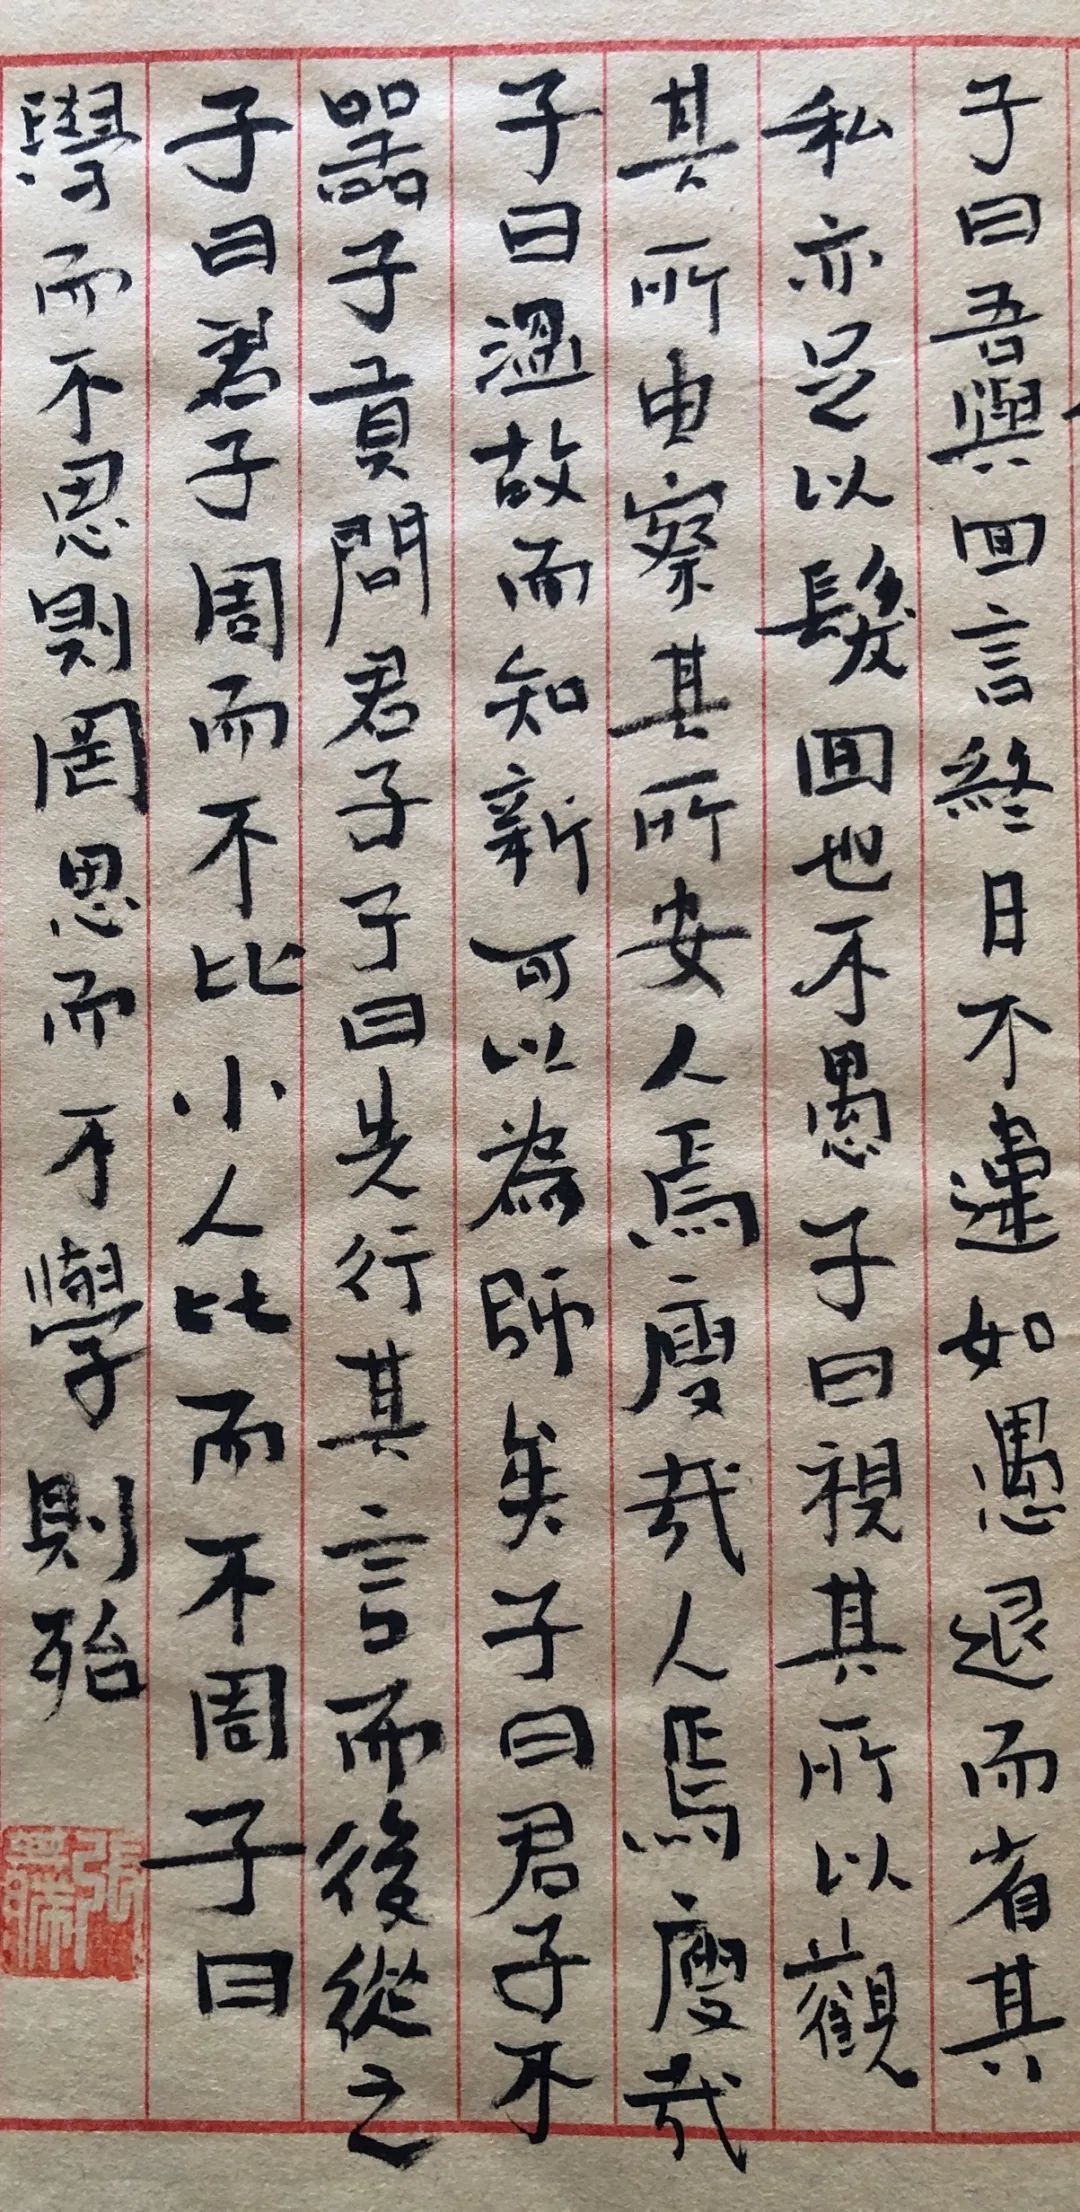 子曰吾與回言終日不違如愚退而省其
私亦足以髮回也不愚子曰視其所以觀
其所由察其所安人焉廋哉人焉廋哉
子曰溫故而知新可以為師矣子曰君子不
器子貢問君子子曰先行其言而後從之
子曰君子周而不比小人比而不周子曰
學而不思則罔思而不學則殆